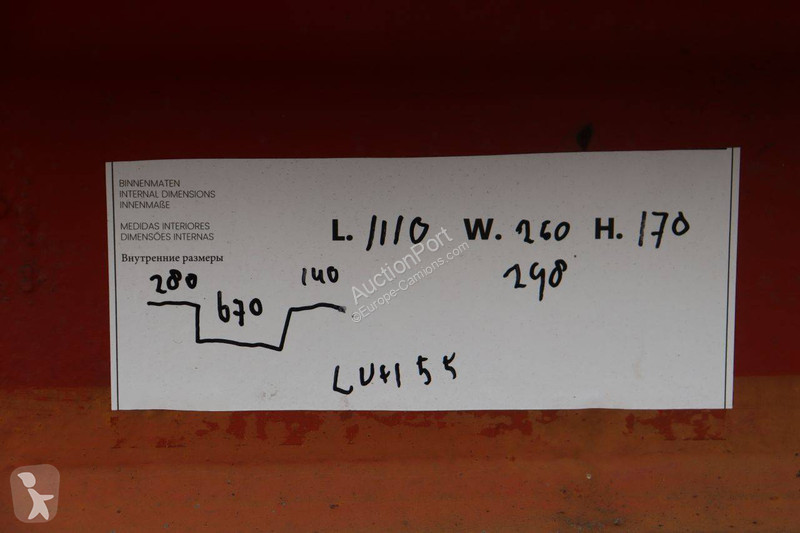 BINNENMATEN
INTERNAL DIMENSIONS
INNENMAßE
MEDIDAS INTERIORES
DIMENSÕES INTERNAS
Внутренние размеры
L. 1110 W. 260 H. 170
298
280 670 140
AuctionPort
©Europe-Camions.com